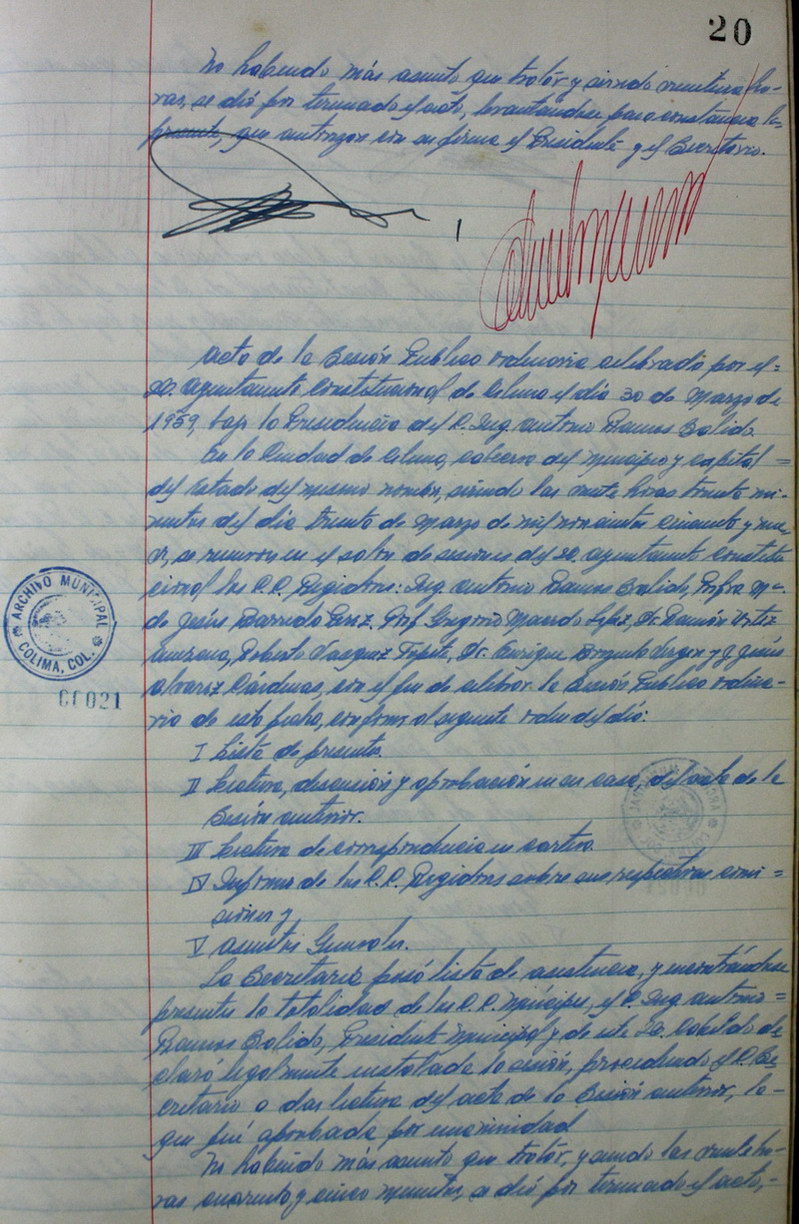 20
No habiendo más asunto que tratar y siendo veintiuna ho-
ras, se dió por terminado el acto, levantandose para constancia la
presente, que autorizan con su firma el Presidente y el Secretario.
Acta de la Sesión Publica ordinaria celebrada por el =
H. Ayuntamiento Constitucional de Colima el día 30 de Marzo de
1959, bajo la Presidencia del C. Ing. Antonio Ramos Salido.
En la Ciudad de Colima, cabecera del municipio y capital =
del Estado del mismo nombre, siendo las veinte horas treinta mi-
nutos del día treinta de Marzo de mil novecientos cincuenta y nue-
ve, se reunieron en el salón de sesiones del H. Ayuntamiento Constitu
cional los C.C. Regidores: Ing. Antonio Ramos Salido, Profra. Ma.
de Jesús Barreda Prof. Gregorio Macedo López, Dr. Ramón Ortiz
Roberto Vazquez Dr. Enrique y J. Jesús
Alvarez Cárdenas, con el fin de celebrar la Sesión Publica ordina-
ria de esta fecha, conforme al siguiente orden del día:
I Lista de presente.
II Lectura, discusión y aprobación en su caso, del acta de la
Sesión anterior.
III Lectura de correspondencia en cartera.
IV Informe de los C.C. Regidores sobre sus respectivas comi =
siones y
V Asuntos Generales.
La Secretaría pasó lista de asistencia, y encontrándose
presente la totalidad de los C.C. Municipes, el C. Ing. Antonio =
Ramos Salido, Presidente Municipal y de este H. Cabildo de
claró legalmente instalada la sesión, procediendo el C. Se-
cretario a dar lectura del acta de la Sesión anterior, la -
que fué aprobada por unanimidad
No habiendo más asunto que tratar, y siendo las veinte ho-
ras cuarenta y cinco minutos, se dió por terminado el acto, -
ARCHIVO MUNICIPAL
COLIMA, COL.
00021